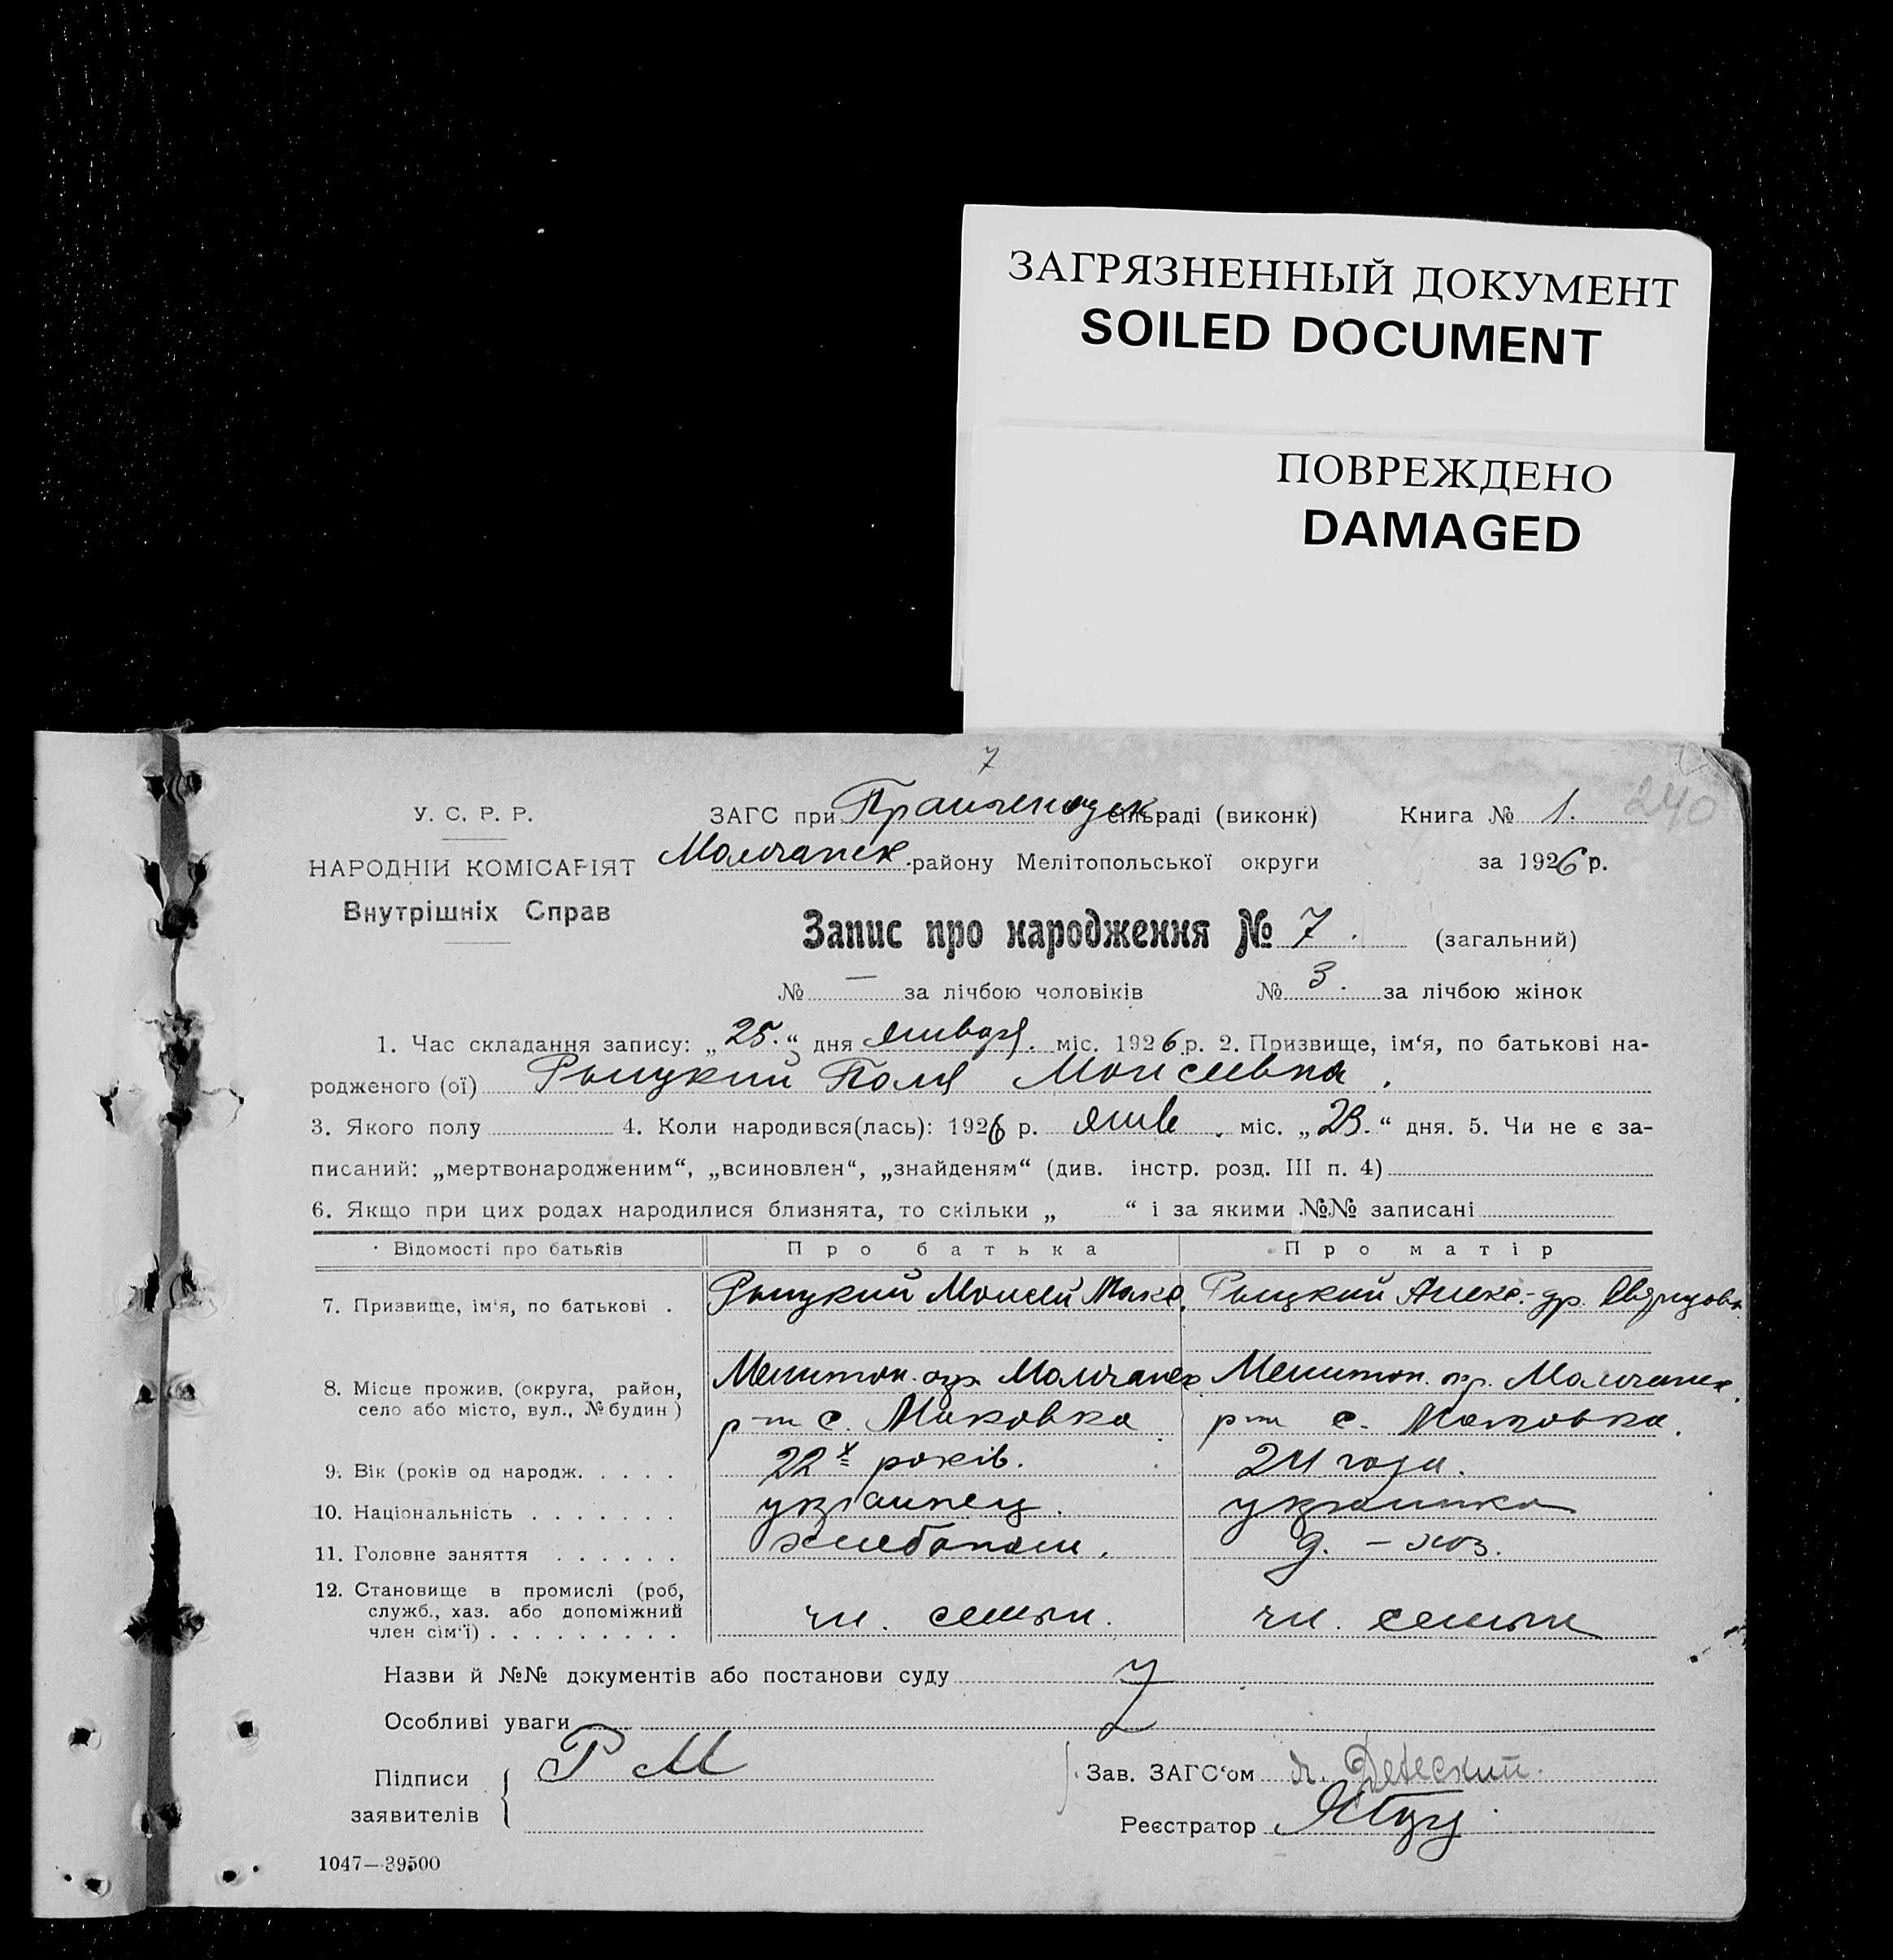 ЗАГРЯЗНЕННЫЙ ДОКУМЕНТ
SOILED DOCUMENT
ПОВРЕЖДЕНО
DAMAGED
7
240
У. С. Р. Р.
ЗАГС при сільраді (виконк) Книга № 1.
НАРОДНІЙ КОМІСАРІЯТ Молочанск. району Мелітопольської округи за 1926 р.
Внутрішніх Справ
Запис про народження № 7. (загальний)
№ — за лічбою чоловіків № 3. за лічбою жінок
1. Час складання запису: „25.“ дня января. міс. 1926 р. 2. Призвище, ім‘я, по батькові на-
родженого (ої) Поля Моисеевна.
3. Якого полу 4. Коли народився(лась): 1926 р. янв. міс. „23.“ дня. 5. Чи не є за-
писаний: „мертвонародженим“, „всиновлен“, „знайденям“ (див. інстр. розд. III п. 4)
6. Якщо при цих родах народилися близнята, то скільки „ “ і за якими №№ записані
Відомості про батьків Про батька Про матір
7. Призвище, ім‘я, по батькові . Моисей Макс. Алекс.-др.
8. Місце прожив. (округа, район, Мелитоп. окр. Молочанск. Мелитоп. окр. Молочанск.
село або місто, вул., № будин) р-на с. Маковка р-на с. Маковка.
9. Вік (років од народж. . . . . 22х років. 24 года.
10. Національність . . . . . . . украинец. украинка
11. Головне заняття . . . . . . хлебопаш. д. – хоз.
12. Становище в промислі (роб,
служб., хаз. або допоміжний чл. семьи. чл. семьи
член сім‘ї) . . . . . . . . .
Назви й №№ документів або постанови суду
Особливі уваги
Підписи Р М Зав. ЗАГС‘ом
заявителів Реєстратор
1047—39500